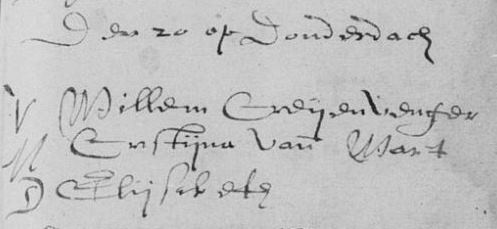 Den 20 op Donderdach
V Willem Greijenvenger
M Cristijna van Wart
D Elijsabeth